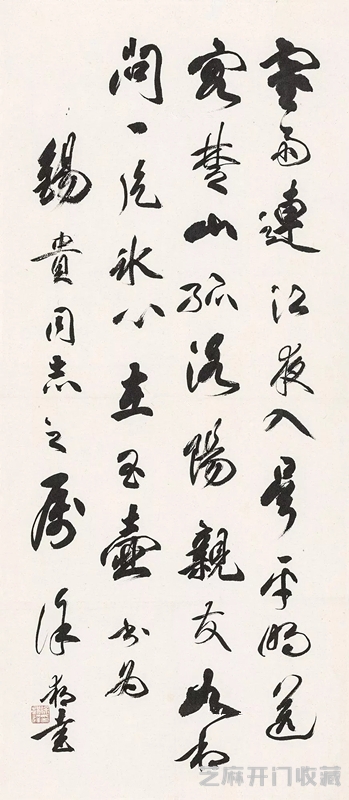 寒雨連江夜入吳平明送
客楚山孤洛陽親友如相
問一片冰心在玉壺書為
錫貴同志之屬徐
芝麻开门收藏